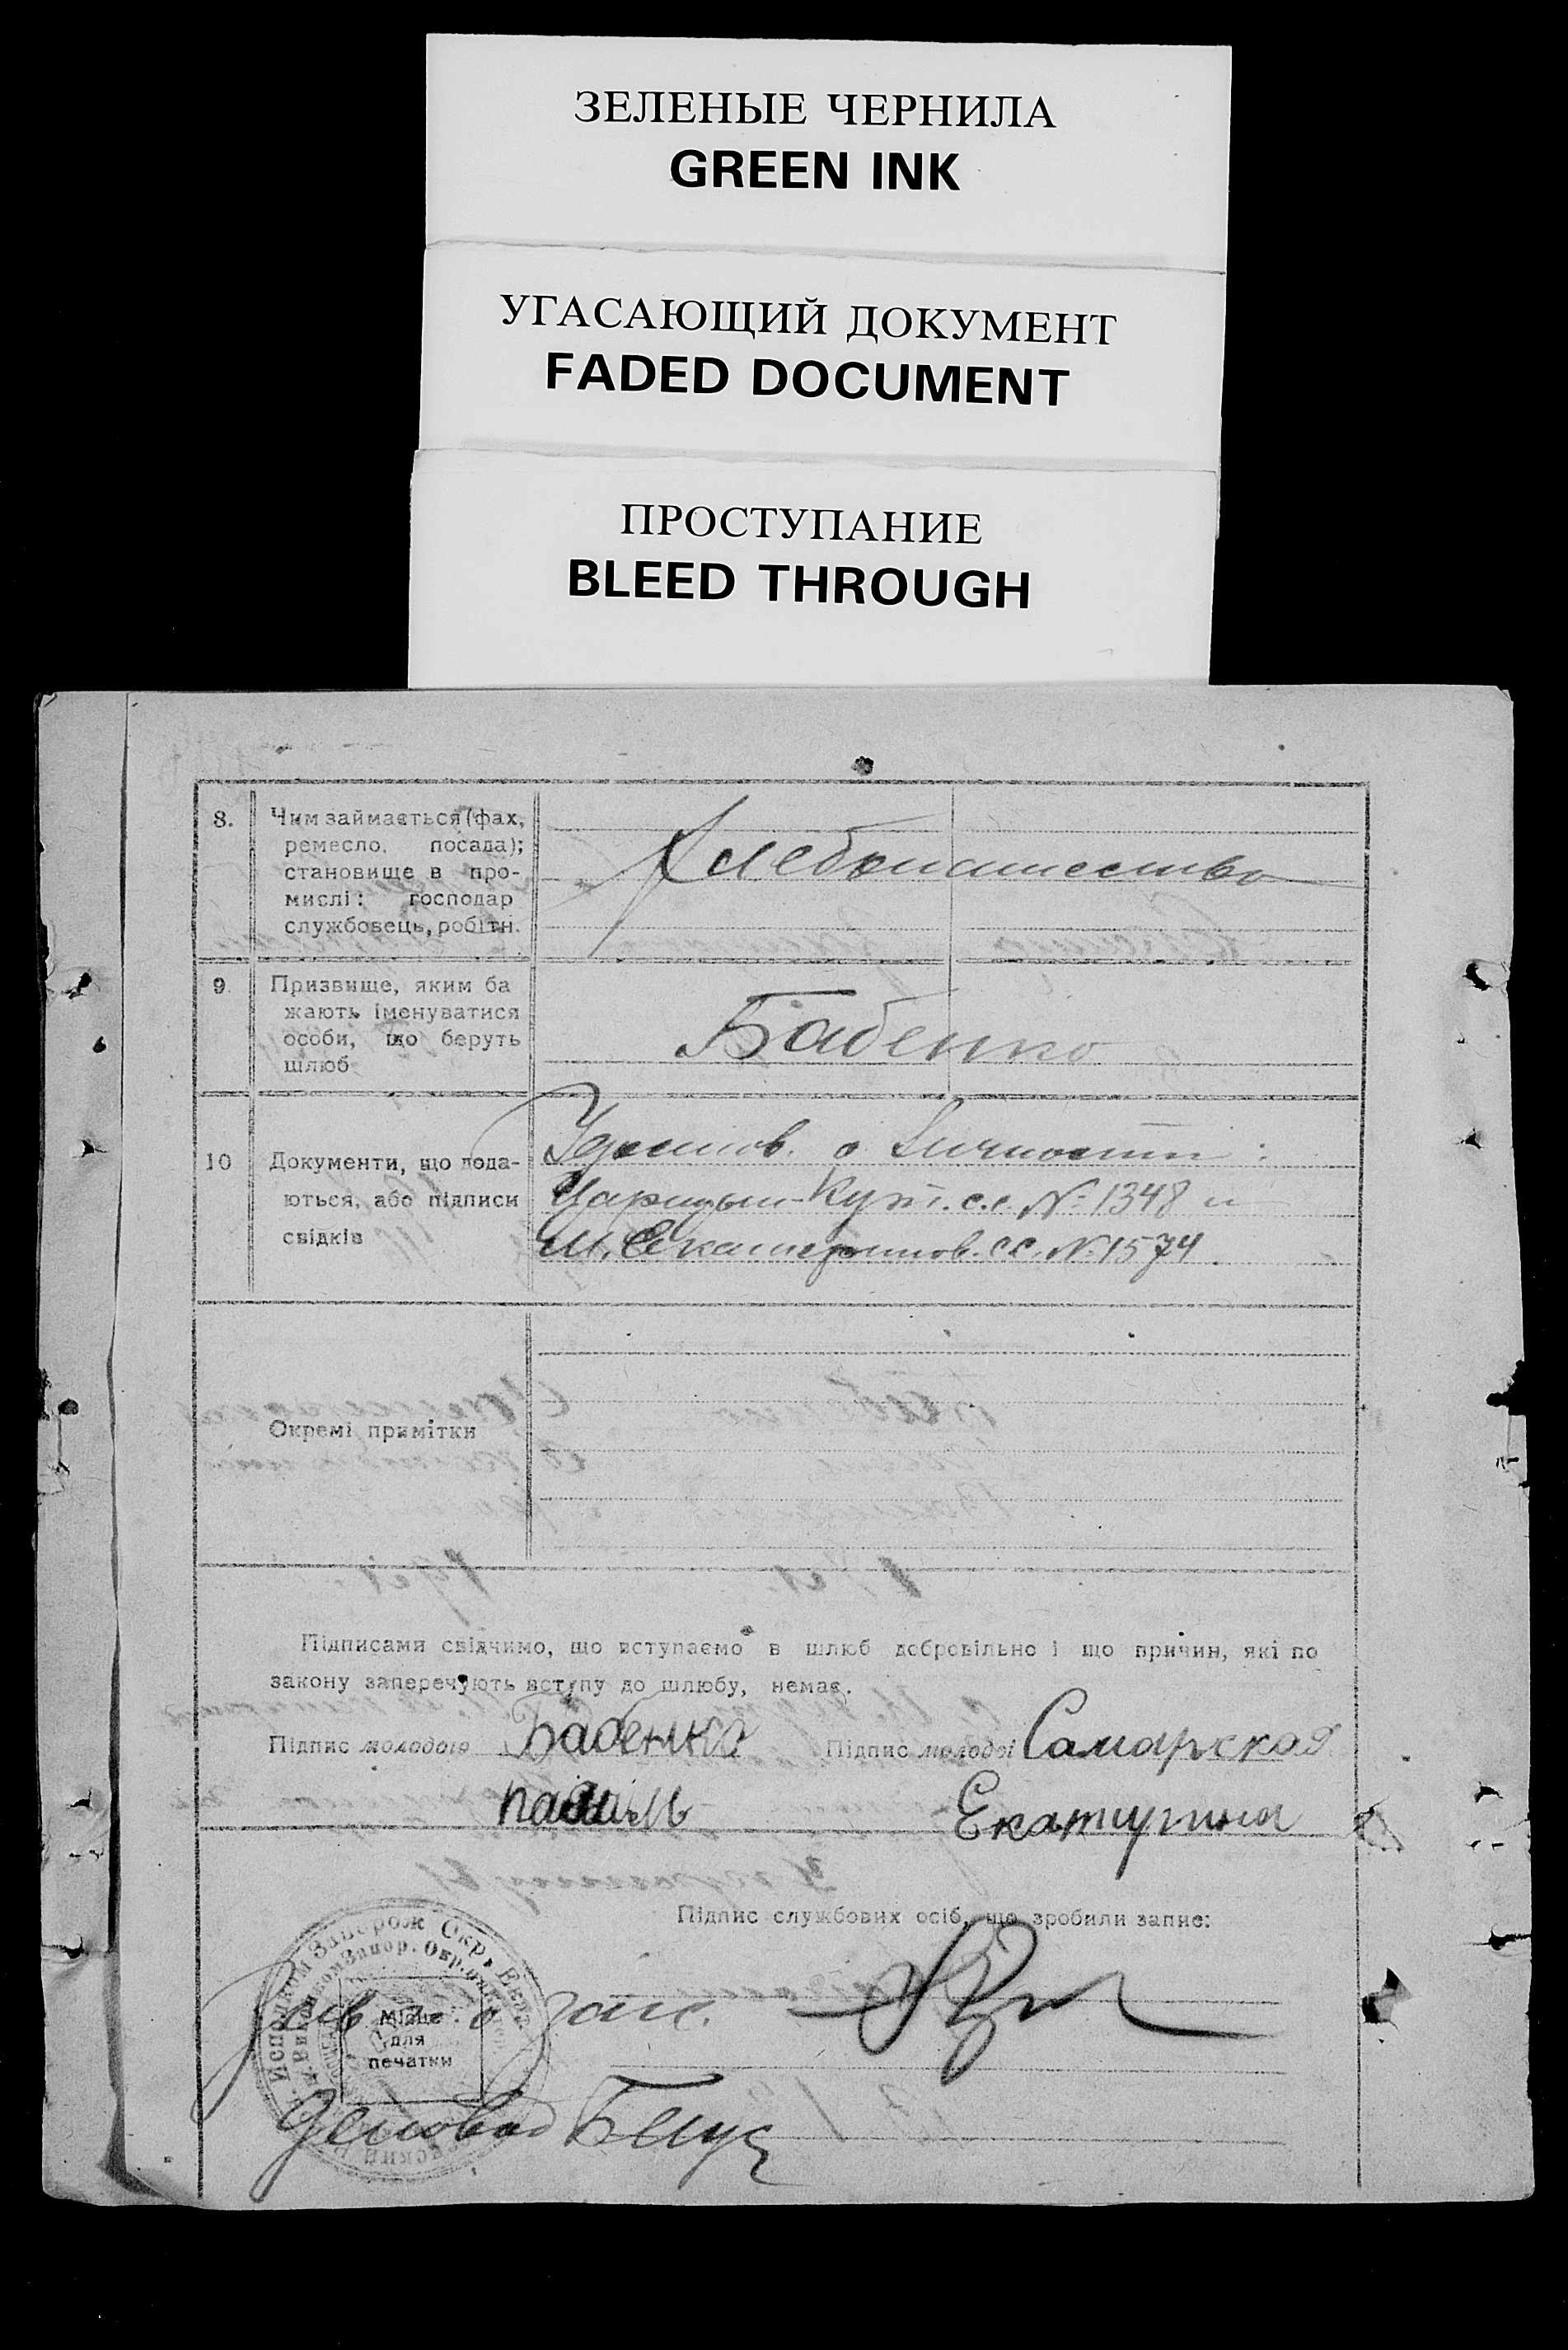 ЗЕЛЕНЫЕ ЧЕРНИЛА
GREEN INK
УГАСАЮЩИЙ ДОКУМЕНТ
FADED DOCUMENT
ПРОСТУПАНИЕ
BLEED THROUGH
8.
Чим займається (фах,
ремесло, посада);
становище в про-
мислі: господар
службовець, робітн.
Хлебопашество
9
Призвище, яким ба
жають іменуватися
особи, що беруть
шлюб
Бабенко
10
Документи, що пода-
ються, або підписи
свідків
Удостов. о личности:
Царицын-Кут. с.с. № 1348 и
М. Екатеринов. с.с. № 1574
Окремі примітки
Підписами свідчимо, що вступаємо в шлюб добровільно і що причин, які по
закону заперечують вступу до шлюбу, немає.
Підпис молодого Бабенко Підпис молодої Самарская
Екатирина
Підпис службових осіб, що зробили запис:
Зав.
Місце
для
печатки
Деловод